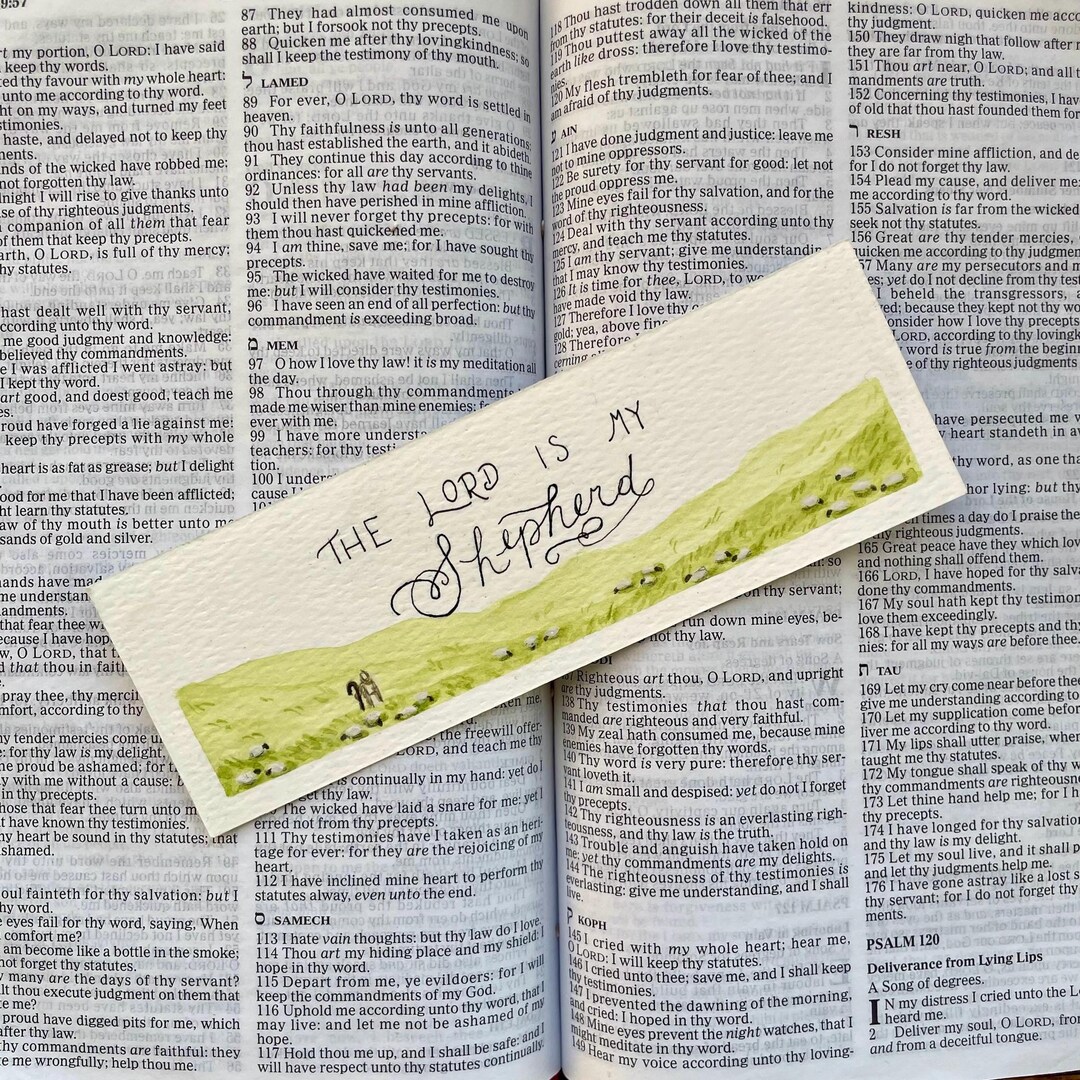 9:57
rt my portion, O LORD: I have said
keep thy words.
ted thy favour with my whole heart:
unto me according to thy word.
ht on my ways, and turned my feet
stimonies.
haste, and delayed not to keep thy
ments.
nds of the wicked have robbed me:
not forgotten thy law.
night I will rise to give thanks unto
se of thy righteous judgments.
companion of all them that fear
of them that keep thy precepts.
arth, O LORD, is full of thy mercy:
hy statutes.
hast dealt well with thy servant,
ccording unto thy word.
me good judgment and knowledge:
believed thy commandments.
e I was afflicted I went astray: but
I kept thy word.
art good, and doest good; teach me
es.
roud have forged a lie against me:
keep thy precepts with my whole
heart is as fat as grease; but I delight
ood for me that I have been afflicted;
ht learn thy statutes.
aw of thy mouth is better unto me
sands of gold and silver.
ands have made
me understan
andments.
that fear thee w
ecause I have hop
w, O LORD, that t
d that thou in faith
pray thee, thy merci
mfort, according to thy
y tender mercies come u
e: for thy law is my delight.
he proud be ashamed; for t
y with me without a cause:
in thy precepts.
hose that fear thee turn unto m
t have known thy testimonies.
y heart be sound in thy statutes;
shamed.
oul fainteth for thy salvation: but I
hy word.
eyes fail for thy word, saying, When
comfort me?
am become like a bottle in the smoke;
not forget thy statutes.
many are the days of thy servant?
lt thou execute judgment on them that
e me?
proud have digged pits for me, which
fter thy law.
hy commandments are faithful: they
e me wrongfully; help thou me.
87 They had almost consumed me upon
earth; but I forsook not thy precepts.
88 Quicken me after thy lovingkindness; so
shall I keep the testimony of thy mouth.
ל LAMED
89 For ever, O LORD, thy word is settled in
heaven.
90 Thy faithfulness is unto all generations:
thou hast established the earth, and it abideth.
91 They continue this day according to thine
ordinances: for all are thy servants.
92 Unless thy law had been my delights, I
should then have perished in mine affliction.
93 I will never forget thy precepts: for with
them thou hast quickened me.
94 I am thine, save me; for I have sought thy
precepts.
95 The wicked have waited for me to destroy
me: but I will consider thy testimonies.
96 I have seen an end of all perfection: but thy
commandment is exceeding broad.
מ MEM
97 O how I love thy law! it is my meditation all
the day.
98 Thou through thy commandments
made me wiser than mine enemies: fo
ever with me.
99 I have more understa
teachers: for thy testi
tion.
100 I under
cause I
THE LORD IS MY
Shepherd
ken me,
the freewill offer-
LORD, and teach me thy
is continually in my hand: yet do I
get thy law.
The wicked have laid a snare for me: yet I
erred not from thy precepts.
111 Thy testimonies have I taken as an heri-
tage for ever: for they are the rejoicing of my
heart.
112 I have inclined mine heart to perform thy
statutes alway, even unto the end.
ס SAMECH
113 I hate vain thoughts: but thy law do I love.
114 Thou art my hiding place and my shield: I
hope in thy word.
115 Depart from me, ye evildoers: for I will
keep the commandments of my God.
116 Uphold me according unto thy word, that I
may live: and let me not be ashamed of my
hope.
117 Hold thou me up, and I shall be safe: and I
will have respect unto thy statutes continually.
118 Thou hast trodden down all them that err
from thy statutes: for their deceit is falsehood.
119 Thou puttest away all the wicked of the
earth like dross: therefore I love thy testimo-
nies.
120 My flesh trembleth for fear of thee; and I
am afraid of thy judgments.
ע AIN
121 I have done judgment and justice: leave me
not to mine oppressors.
122 Be surety for thy servant for good: let not
the proud oppress me.
123 Mine eyes fail for thy salvation, and for the
word of thy righteousness.
124 Deal with thy servant according unto thy
mercy, and teach me thy statutes.
125 I am thy servant; give me understandin
that I may know thy testimonies.
126 It is time for thee, LORD, to w
have made void thy law.
127 Therefore I love thy
gold; yea, above fine
128 Therefore
cerning
so
n thy servant;
run down mine eyes, be-
not thy law.
137 Righteous art thou, O LORD, and upright
are thy judgments.
138 Thy testimonies that thou hast com-
manded are righteous and very faithful.
139 My zeal hath consumed me, because mine
enemies have forgotten thy words.
140 Thy word is very pure: therefore thy ser-
vant loveth it.
141 I am small and despised: yet do not I forget
thy precepts.
142 Thy righteousness is an everlasting righ-
teousness, and thy law is the truth.
143 Trouble and anguish have taken hold on
me: yet thy commandments are my delights.
144 The righteousness of thy testimonies is
everlasting: give me understanding, and I shall
live.
ק KOPH
145 I cried with my whole heart; hear me,
O LORD: I will keep thy statutes.
146 I cried unto thee; save me, and I shall keep
thy testimonies.
147 I prevented the dawning of the morning,
and cried: I hoped in thy word.
148 Mine eyes prevent the night watches, that I
might meditate in thy word.
149 Hear my voice according unto thy loving-
kindness: O LORD, quicken me acco
thy judgment.
150 They draw nigh that follow after m
they are far from thy law.
151 Thou art near, O LORD; and all t
mandments are truth.
152 Concerning thy testimonies, I hav
of old that thou hast founded them for
ר RESH
153 Consider mine affliction, and de
for I do not forget thy law.
154 Plead my cause, and deliver me:
me according to thy word.
155 Salvation is far from the wicked
seek not thy statutes.
156 Great are thy tender mercies,
quicken me according to thy judgment
157 Many are my persecutors and m
es; yet do I not decline from thy test
I beheld the transgressors, a
ved; because they kept not thy wo
onsider how I love thy precepts
LORD, according to thy lovingk
word is true from the beginn
e of thy righteous judgments
have persecuted me w
y heart standeth in aw
thy word, as one tha
hor lying: but thy
n times a day do I praise the
thy righteous judgments.
165 Great peace have they which lov
and nothing shall offend them.
166 LORD, I have hoped for thy salva
done thy commandments.
167 My soul hath kept thy testimon
love them exceedingly.
168 I have kept thy precepts and th
nies: for all my ways are before thee.
ת TAU
169 Let my cry come near before thee
give me understanding according to
170 Let my supplication come befor
liver me according to thy word.
171 My lips shall utter praise, when
taught me thy statutes.
172 My tongue shall speak of thy w
thy commandments are righteousne
173 Let thine hand help me; for I h
thy precepts.
174 I have longed for thy salvation
and thy law is my delight.
175 Let my soul live, and it shall p
and let thy judgments help me.
176 I have gone astray like a lost s
thy servant; for I do not forget thy
ments.
PSALM 120
Deliverance from Lying Lips
A Song of degrees.
IN my distress I cried unto the Lo
heard me.
2 Deliver my soul, O LORD, from
and from a deceitful tongue.